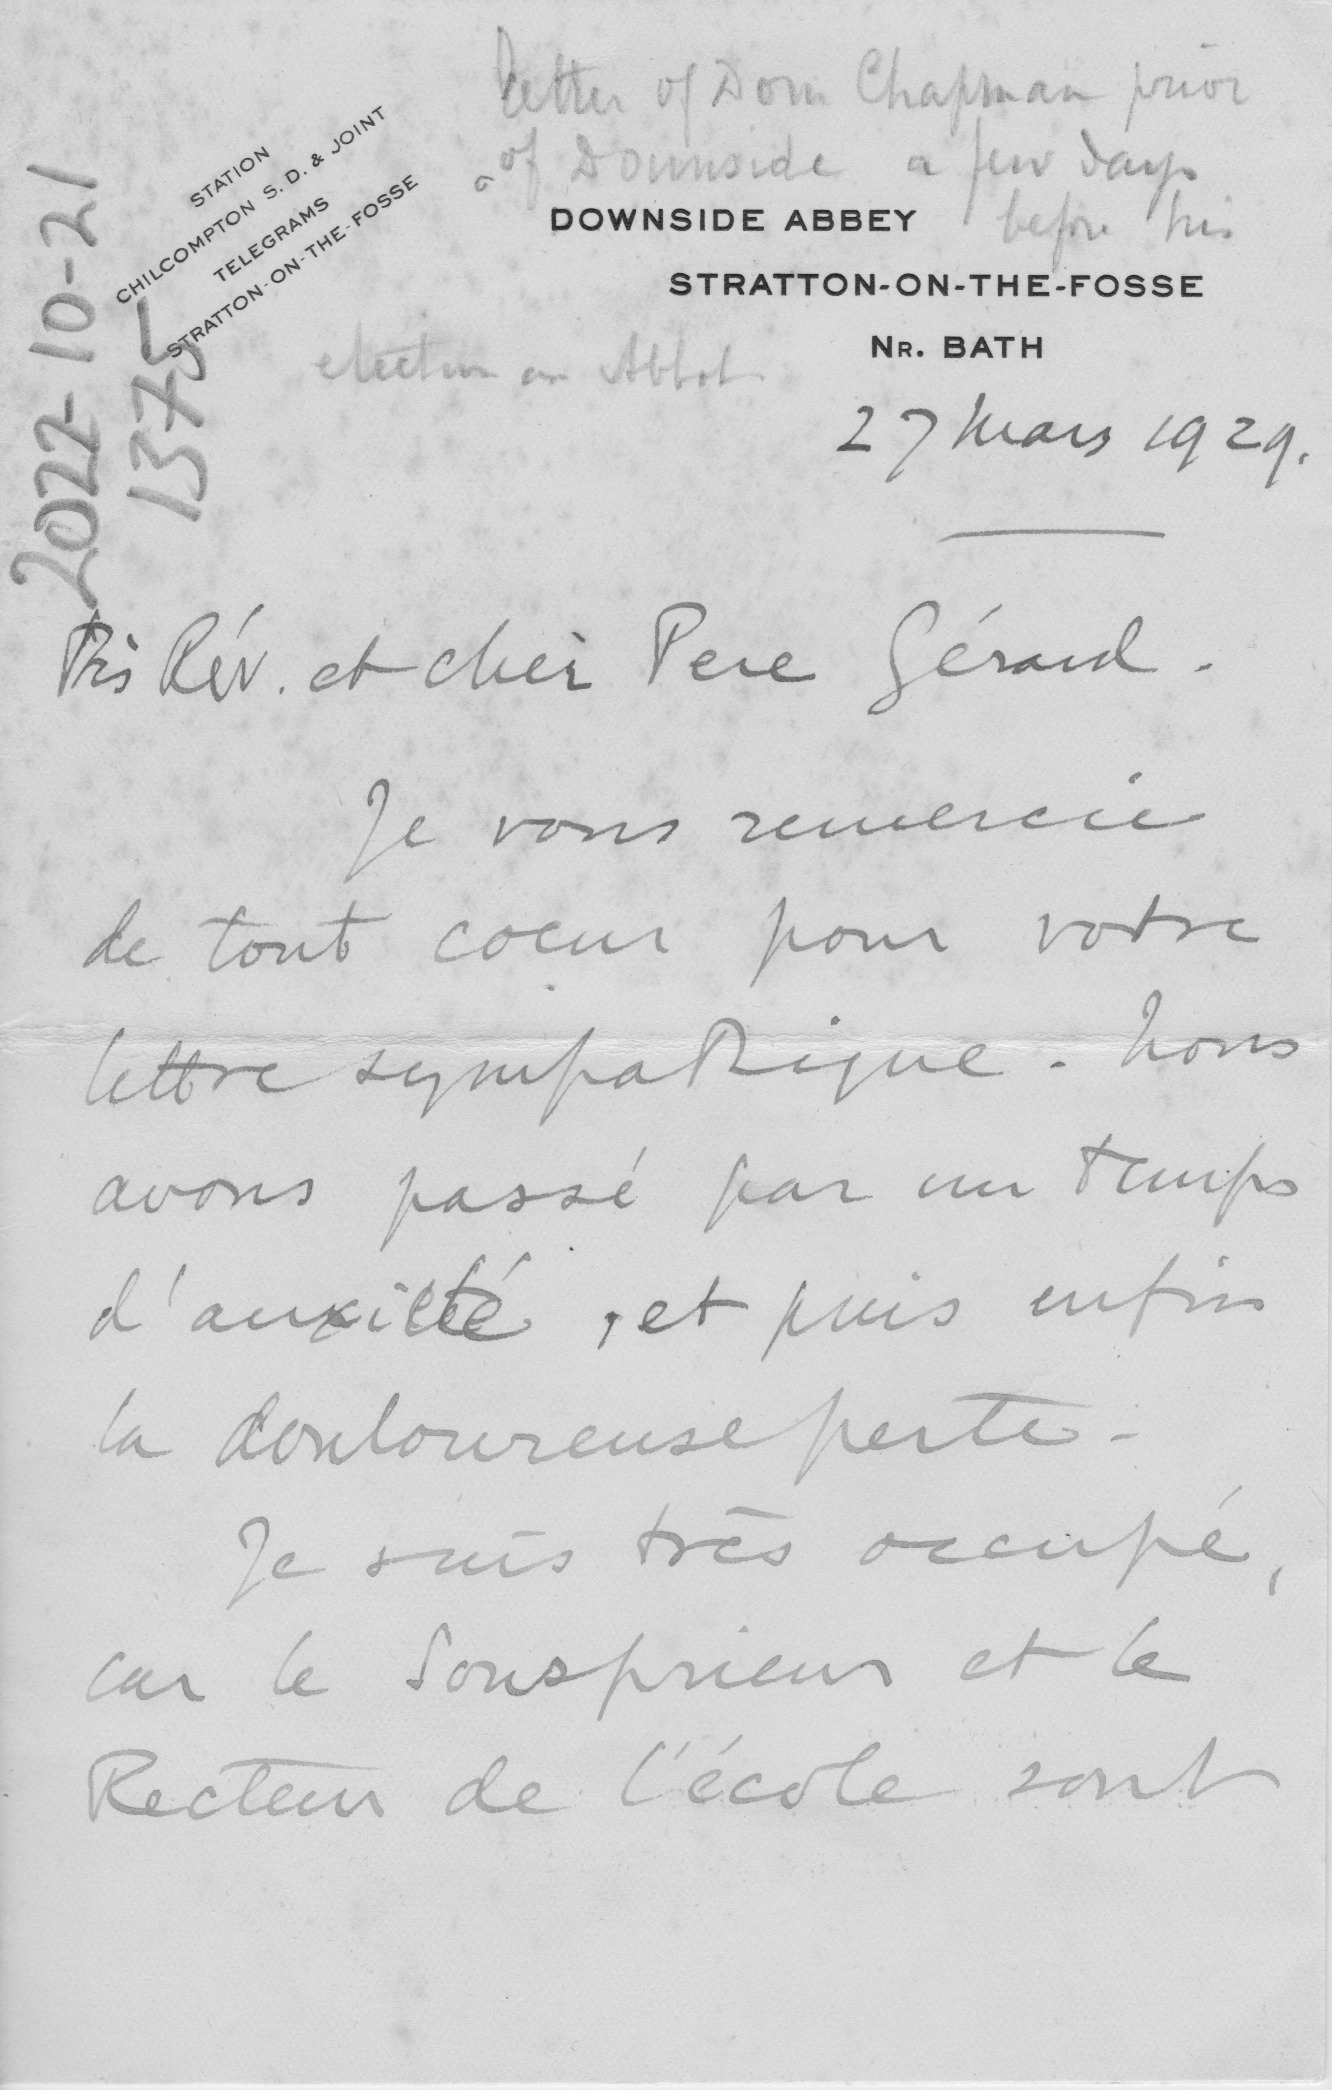 letter of Dom Chapman prior
of Downside a few days
before his
election as Abbot.
2022-10-21
1375
STATION
CHILCOMPTON S. D. & JOINT
TELEGRAMS
STRATTON-ON-THE-FOSSE
DOWNSIDE ABBEY
STRATTON-ON-THE-FOSSE
NR. BATH
27 Mars 1929.
Très Rév. et cher Pere Gérard.
Je vous remercie
de tout coeur pour votre
lettre sympathique. Nous
avons passé par un temps
d'anxiété, et puis enfin
la douloureuse perte.
Je suis très occupé,
car le Sousprieur et le
Recteur de l'école sont